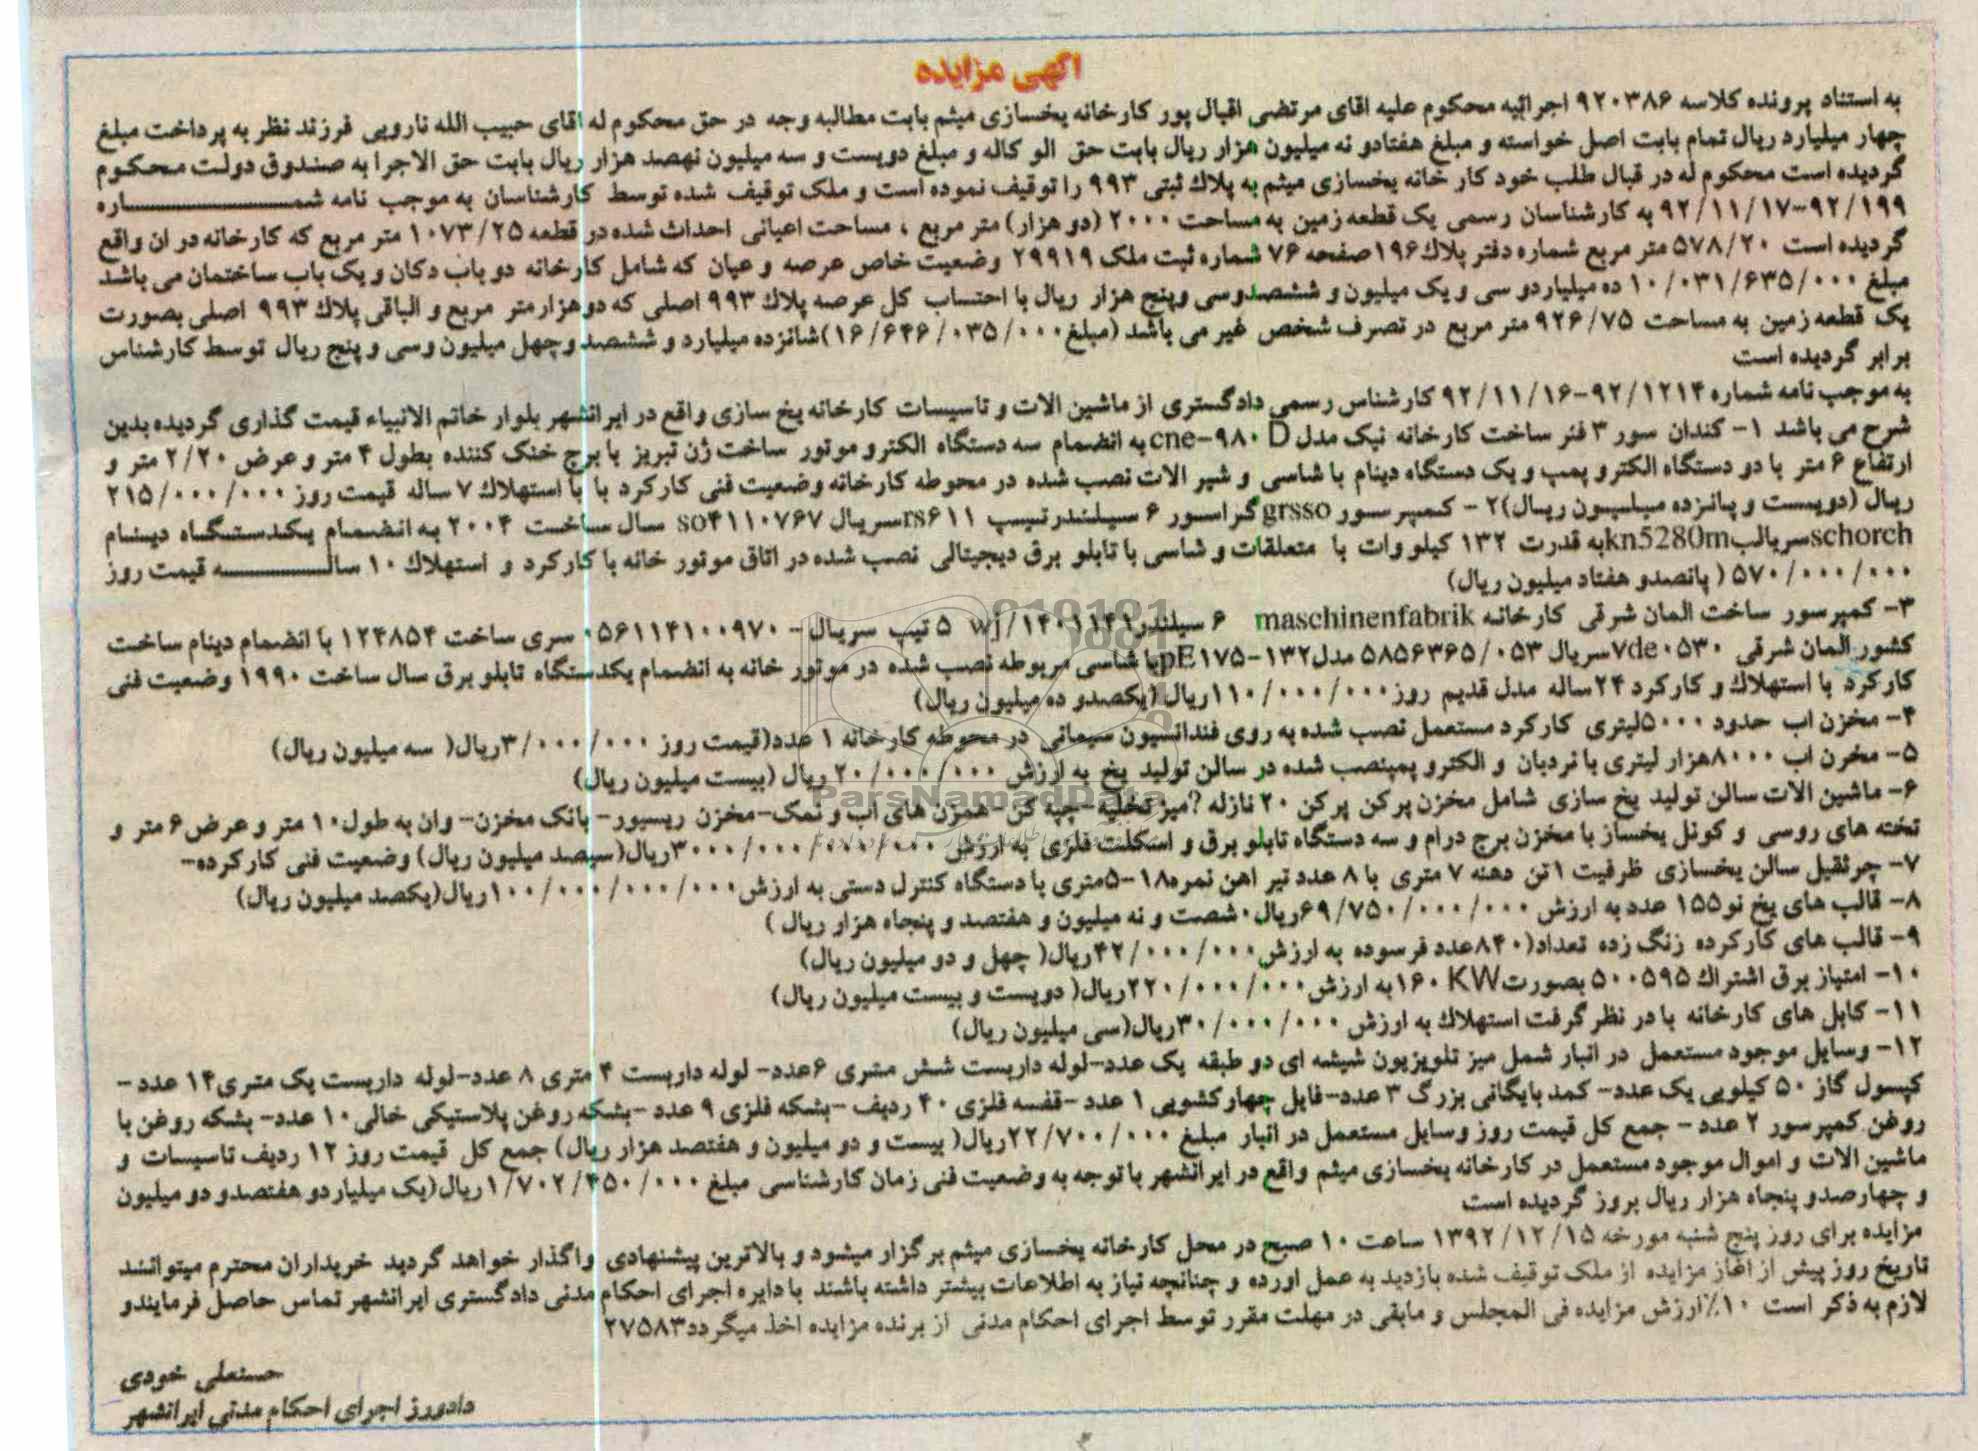 اگهی مزایده
به استناد پرونده کلاسه ۹۲۰۳۸۶ اجرائیه محکوم علیه اقای مرتضی اقبال پور کارخانه یخسازی میثم بابت مطالبه وجه در حق محکوم له اقای حبیب الله نارویی فرزند نظر به پرداخت مبلغ
چهار میلیارد ریال تمام بابت اصل خواسته و مبلغ هفتادو نه میلیون هزار ریال بابت حق الو کاله و مبلغ دویست و سه میلیون نهصد هزار ریال بابت حق الاجرا به صندوق دولت محکوم
گردیده است محکوم له در قبال طلب خود کار خانه یخسازی میثم به پلاك ثبتی ۹۹۳ را توقیف نموده است و ملک توقیف شده توسط کارشناسان به موجب نامه شمـــــاره
۹۲/۱۱/۱۷-۹۲/۱۹۹ به کارشناسان رسمی یک قطعه زمین به مساحت ۲۰۰۰ (دو هزار) متر مربع ، مساحت اعیانی احداث شده در قطعه ۱۰۷۳/۲۵ متر مربع که کارخانه در ان واقع
گردیده است ۵۷۸/۲۰ متر مربع شماره دفتر پلاك۱۹۶صفحه ۷۶ شماره ثبت ملک ۲۹۹۱۹ وضعیت خاص عرصه و عیان که شامل کارخانه دو باب دکان و یک باب ساختمان می باشد
مبلغ ۱۰/۰۳۱/۶۳۵/۰۰۰ ده میلیاردو سی و یک میلیون و ششصدوسی وپنج هزار ریال با احتساب کل عرصه پلاك ۹۹۳ اصلی که دوهزارمتر مربع و الباقی پلاك ۹۹۳ اصلی بصورت
یک قطعه زمین به مساحت ۹۲۶/۷۵ متر مربع در تصرف شخص غیر می باشد (مبلغ۱۶/۶۴۶/۰۳۵/۰۰۰)شانزده میلیارد و ششصد وچهل میلیون وسی و پنج ریال توسط کارشناس
برابر گردیده است
به موجب نامه شماره ۹۲/۱۲۱۴-۹۲/۱۱/۱۶ کارشناس رسمی دادگستری از ماشین الات و تاسیسات کارخانه یخ سازی واقع در ایرانشهر بلوار خاتم الانبیاء قیمت گذاری گردیده بدین
شرح می باشد ۱- کندان سور ۳ فنر ساخت کارخانه نیک مدل cne-۹۸۰ D به انضمام سه دستگاه الکترو موتور ساخت ژن تبریز با برج خنک کننده بطول ۴ متر و عرض ۲/۲۰ متر و
ارتفاع ۶ متر با دو دستگاه الکترو پمپ و یک دستگاه دینام با شاسی و شیر الات نصب شده در محوطه کارخانه وضعیت فنی کارکرد با با استهلاك ۷ ساله قیمت روز ۲۱۵/۰۰۰/۰۰۰
ریال (دویست و پانزده میلیون ریال)۲ - کمپرسور grsso گراسور ۶ سیلندرتیپ rs۶۱۱سریال so۴۱۱۰۷۶۷ سال ساخت ۲۰۰۴ به انضمام یکدستگاه دینام
schorchسریالبkn5280mبه قدرت ۱۳۲ کیلو وات با متعلقات و شاسی با تابلو برق دیجیتالی نصب شده در اتاق موتور خانه با کارکرد و استهلاك ۱۰ سالـــــه قیمت روز
۵۷۰/۰۰۰/۰۰۰ ( پانصدو هفتاد میلیون ریال)
۳- کمپرسور ساخت المان شرقی کارخانه maschinenfabrik ۶ سیلندر۱۴۰۱۱۴۱/wj ۵ تیپ سریال - ۰۵۶۱۱۴۱۰۰۹۷۰ سری ساخت ۱۲۴۸۵۴ با انضمام دینام ساخت
کشور المان شرقی vde۰۵۳۰سریال ۵۸۵۶۳۶۵/۰۵۳ مدل۱۳۲-pE۱۷۵با شاسی مربوطه نصب شده در موتور خانه به انضمام یکدستگاه تابلو برق سال ساخت ۱۹۹۰ وضعیت فنی
کارکرد با استهلاك و کارکرد ۲۴ساله مدل قدیم روز۱۱۰/۰۰۰/۰۰۰ریال (یکصدو ده میلیون ریال)
۴- مخزن اب حدود ۵۰۰۰لیتری کارکرد مستعمل نصب شده به روی فندانسیون سیمانی در محوطه کارخانه ۱ عدد(قیمت روز ۳/۰۰۰/۰۰۰ریال( سه میلیون ریال)
۵- مخرن اب ۸۰۰۰هزار لیتری با نردبان و الکترو پمپنصب شده در سالن تولید یخ به ارزش ۲۰/۰۰۰/۰۰۰ ریال (بیست میلیون ریال)
۶- ماشین الات سالن تولید یخ سازی شامل مخزن پرکن پرکن ۲۰ نازله ?میز تخلیه-چپه کن-همزن های اب و نمک-مخزن ریسیور- بانک مخزن- وان به طول۱۰ متر و عرض۶ متر و
تخته های روسی و کونل یخساز با مخزن برج درام و سه دستگاه تابلو برق و اسکلت فلزی به ارزش ۳۰۰۰/۰۰۰/۰۰۰/۰۰۰ریال(سیصد میلیون ریال) وضعیت فنی کارکرده-
۷- جرثقیل سالن یخسازی ظرفیت ۱تن دهنه ۷ متری با ۸ عدد تیر اهن نمره۱۸-۵متری با دستگاه کنترل دستی به ارزش۱۰۰/۰۰۰/۰۰۰/۰۰۰ریال(یکصد میلیون ریال)
۸- قالب های یخ نو۱۵۵ عدد به ارزش ۶۹/۷۵۰/۰۰۰/۰۰۰ریال۰شصت و نه میلیون و هفتصد و پنجاه هزار ریال )
۹- قالب های کارکرده زنگ زده تعداد(۸۴۰عدد فرسوده به ارزش۴۲/۰۰۰/۰۰۰ریال( چهل و دو میلیون ریال)
۱۰- امتیاز برق اشتراك ۵۰۰۵۹۵ بصورت۱۶۰ KWبه ارزش۲۲۰/۰۰۰/۰۰۰ریال( دویست و بیست میلیون ریال)
۱۱- کابل های کارخانه با در نظر گرفت استهلاك به ارزش ۳۰/۰۰۰/۰۰۰ریال(سی میلیون ریال)
۱۲- وسایل موجود مستعمل در انبار شمل میز تلویزیون شیشه ای دو طبقه یک عدد-لوله داربست شش متری ۶عدد- لوله داربست ۴ متری ۸ عدد-لوله داربست یک متری۱۴ عدد -
کپسول گاز ۵۰ کیلویی یک عدد- کمد بایگانی بزرگ ۳ عدد-فایل چهارکشویی ۱ عدد -قفسه فلزی ۴۰ ردیف -بشکه فلزی ۹ عدد -بشکه روغن پلاستیکی خالی ۱۰ عدد- بشکه روغن با
روغن کمپرسور ۲ عدد - جمع کل قیمت روز وسایل مستعمل در انبار مبلغ ۲۲/۷۰۰/۰۰۰ریال( بیست و دو میلیون و هفتصد هزار ریال) جمع کل قیمت روز ۱۲ ردیف تاسیسات و
ماشین الات و اموال موجود مستعمل در کارخانه یخسازی میثم واقع در ایرانشهر با توجه به وضعیت فنی زمان کارشناسی مبلغ ۱/۷۰۲/۴۵۰/۰۰۰ریال(یک میلیاردو هفتصدو دو میلیون
و چهارصدو پنجاه هزار ریال بروز گردیده است
مزایده برای روز پنج شنبه مورخه ۱۳۹۲/۱۲/۱۵ ساعت ۱۰ صبح در محل کارخانه یخسازی میثم برگزار میشود و بالاترین پیشنهادی واگذار خواهد گردید خریداران محترم میتوانند
تاریخ روز پیش از اغاز مزایده از ملک توقیف شده بازدید به عمل اورده و چنانچه نیاز به اطلاعات بیشتر داشته باشند با دایره اجرای احکام مدنی دادگستری ایرانشهر تماس حاصل فرمایندو
لازم به ذکر است ۱۰٪ارزش مزایده فی المجلس و مابقی در مهلت مقرر توسط اجرای احکام مدنی از برنده مزایده اخذ میگردد۲۷۵۸۳
حسنعلی خودی
دادورز اجرای احکام مدنی ایرانشهر
ParsNamadData